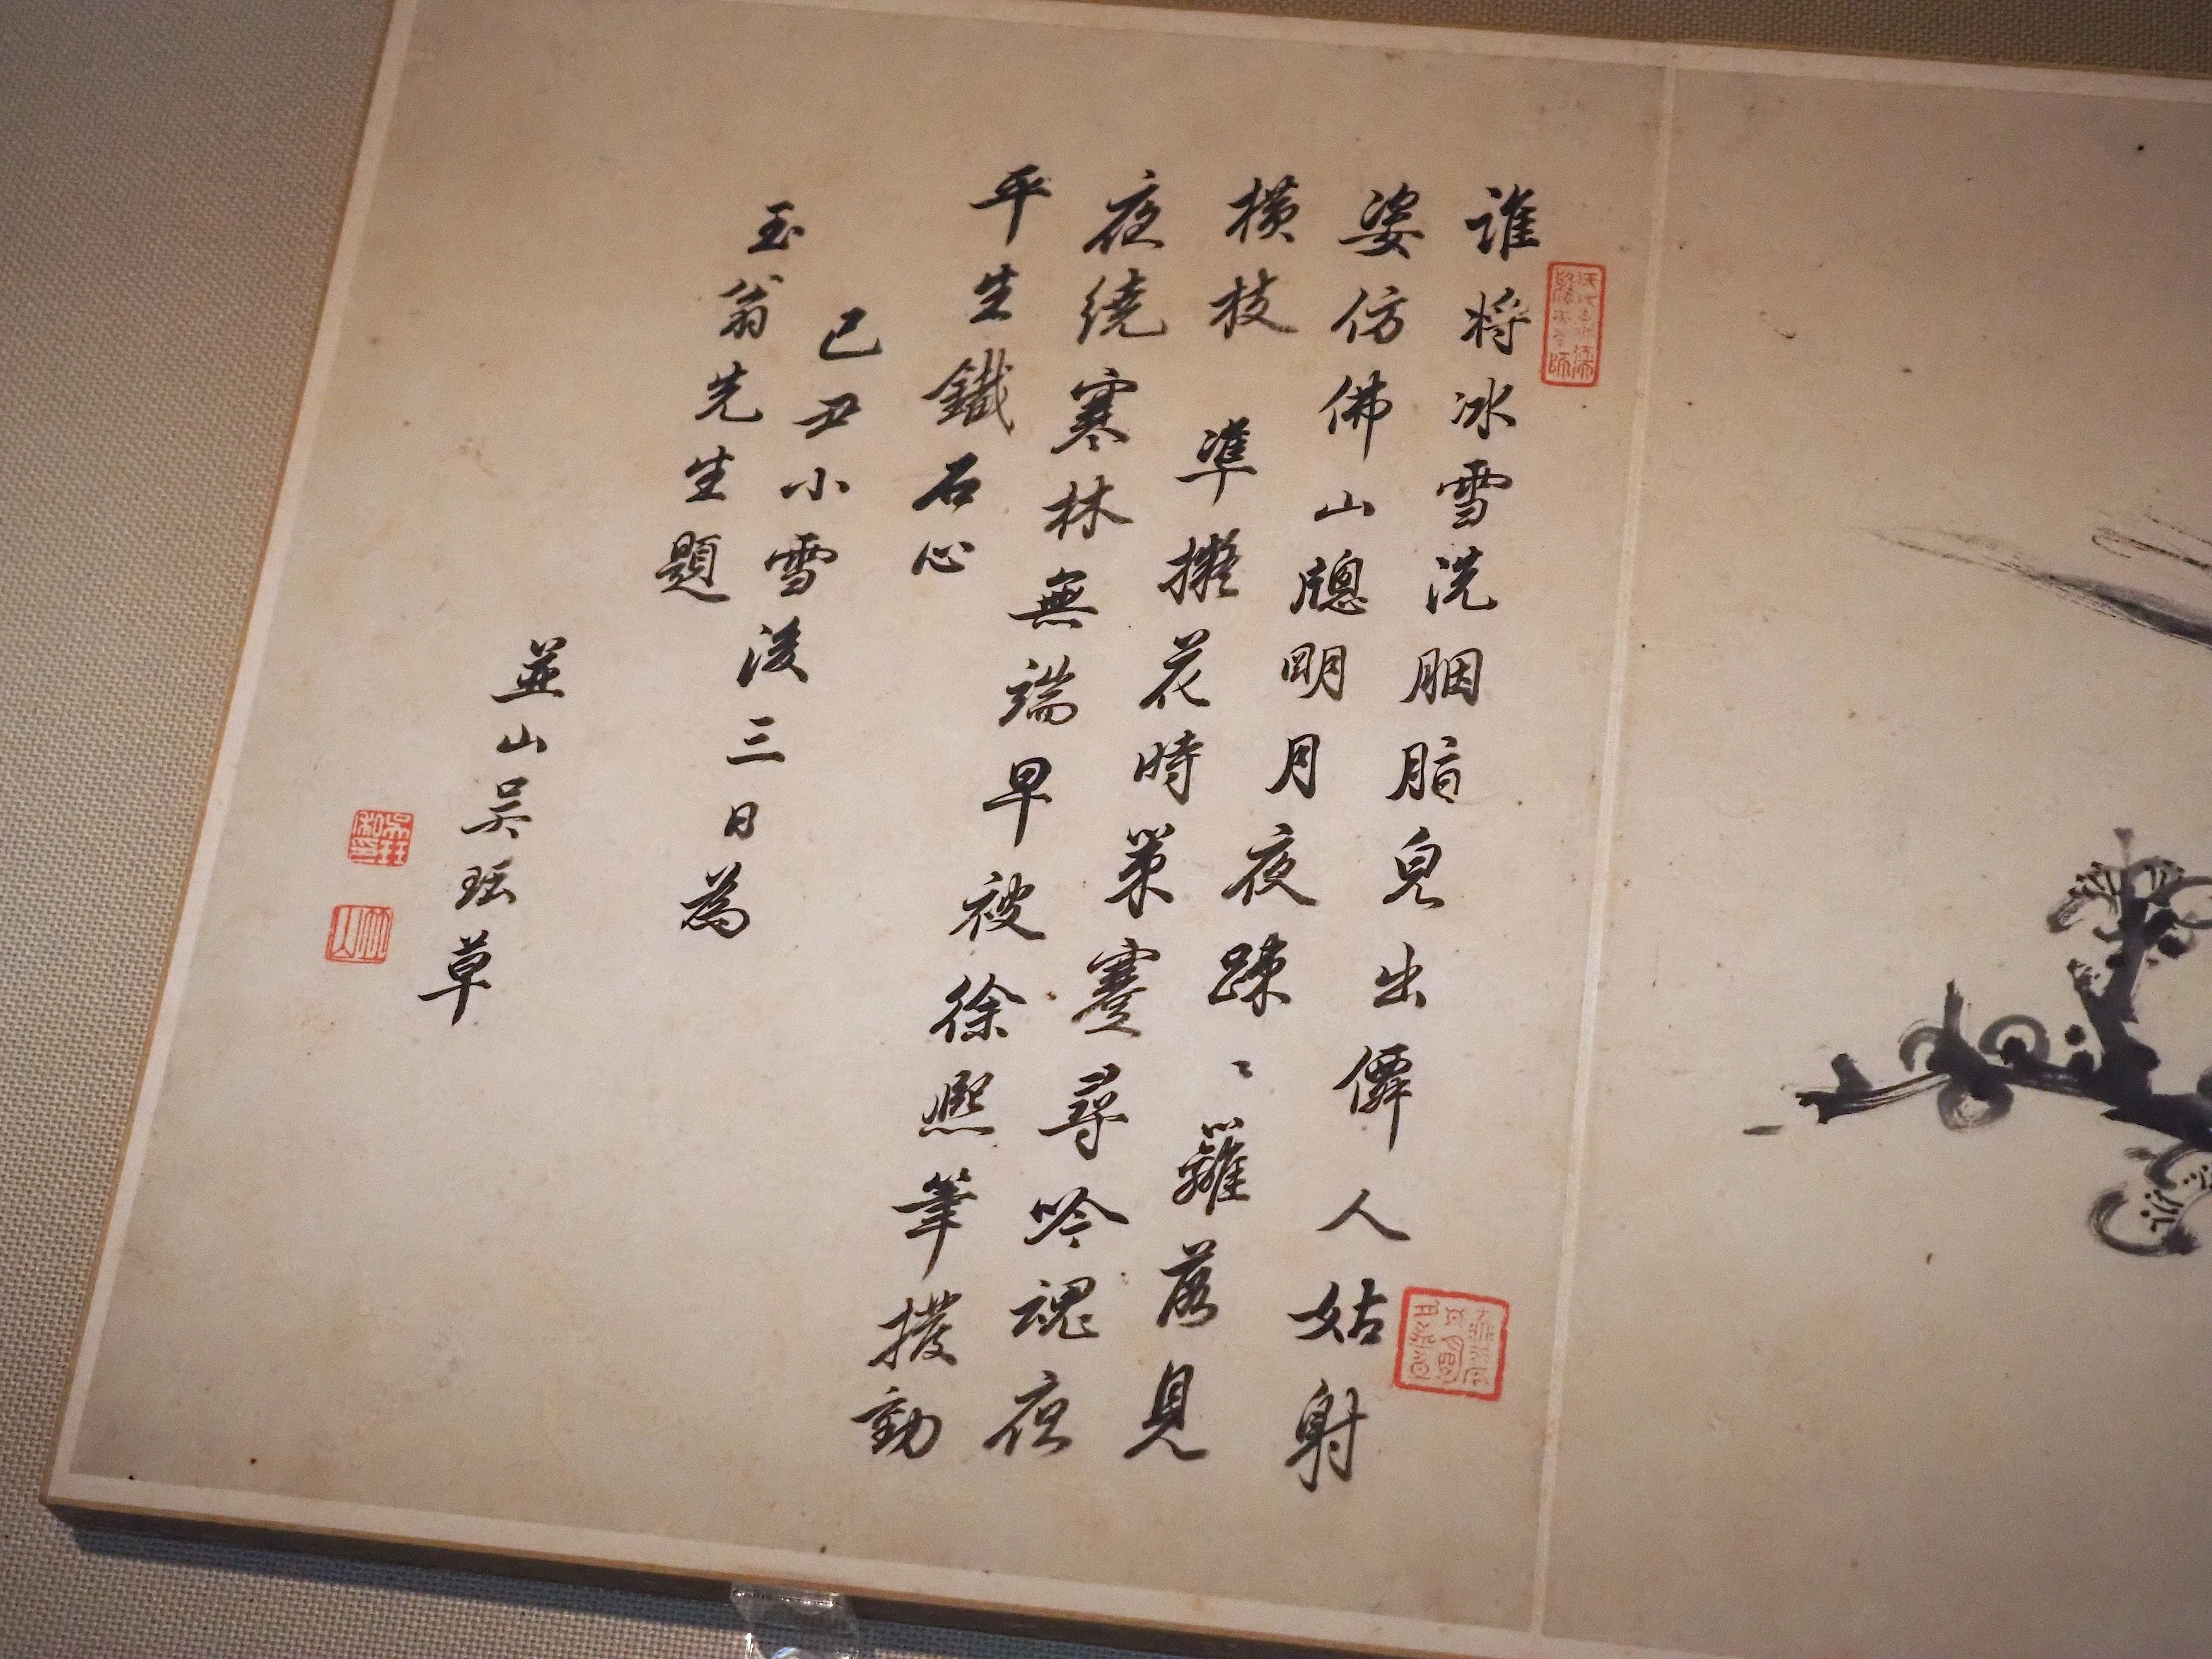 誰將冰雪洗胭脂皃出僊人姑射
姿仿佛山牎明月夜踈〻籬落見
橫枝　準擬花時策蹇尋吟魂夜
夜繞寒林無端早被徐熙筆撥動
平生鐵石心
己丑小雪後三日為
玉翁先生題
並山吳珏草